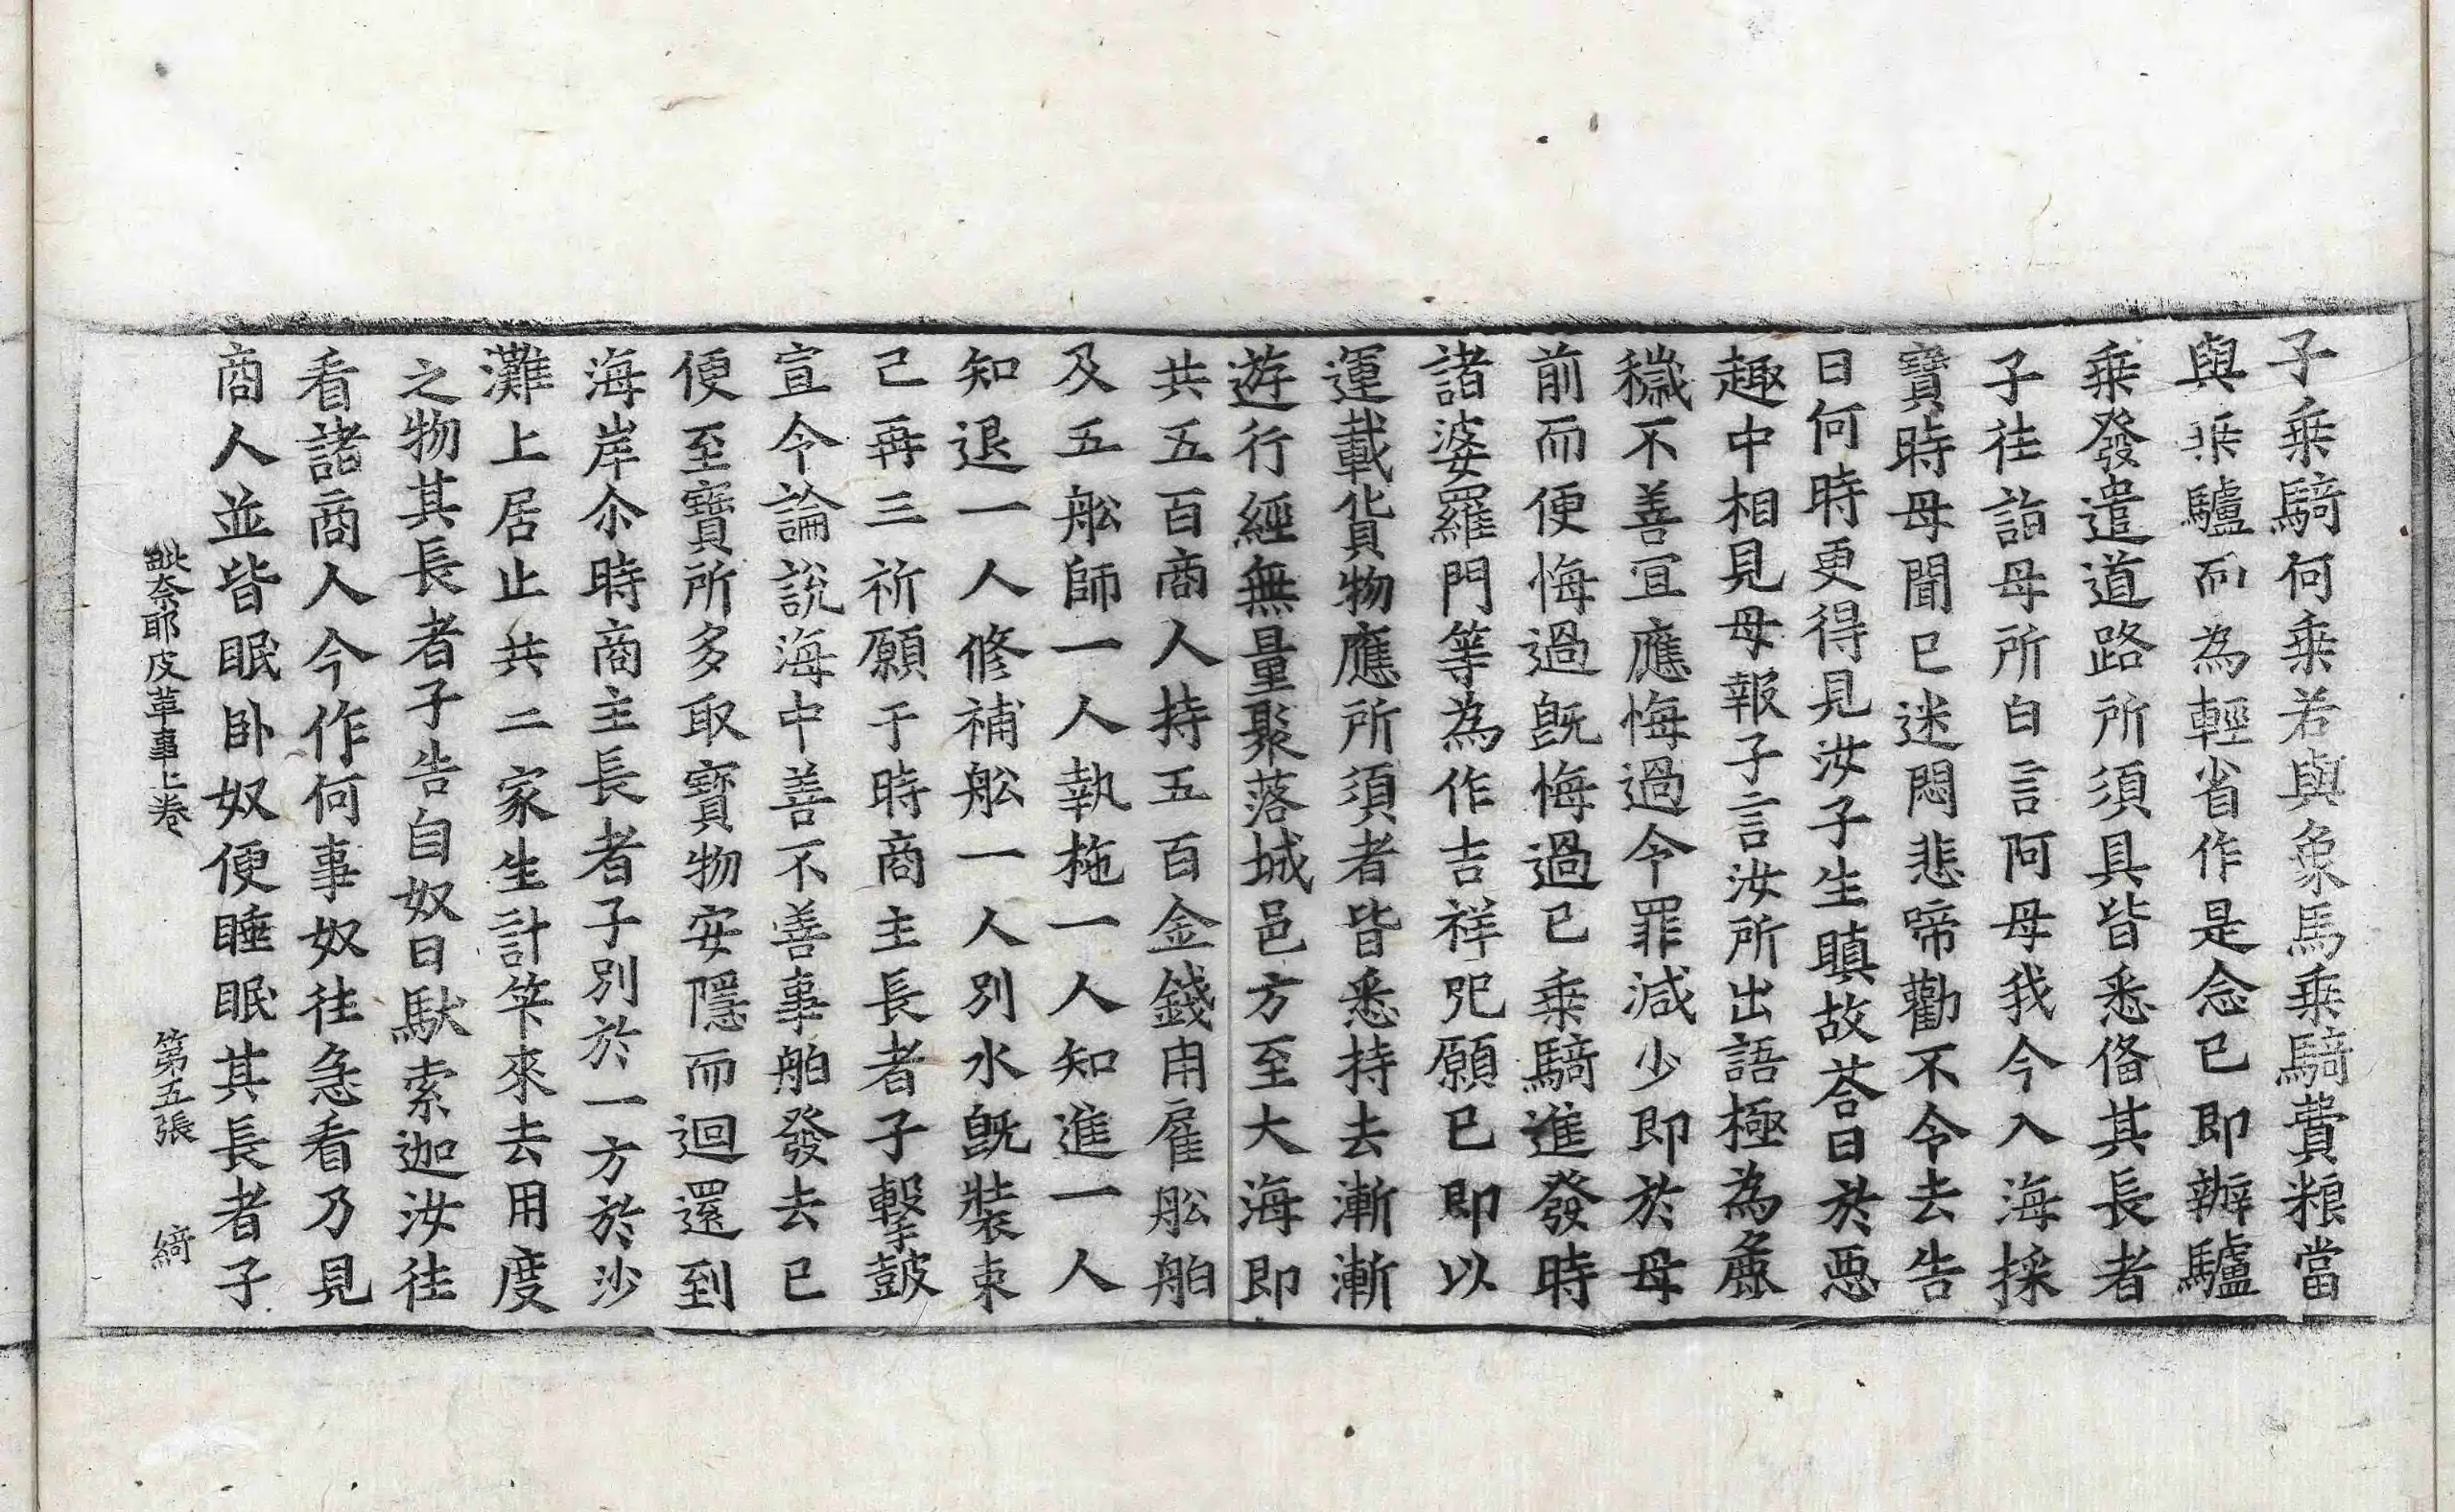 子乗騎何乗若與象馬乗騎費粮當
與乗驢而為輕省作是念已即辦驢
乗發遣道路所須具皆悉俻其長者
子往詣母所白言阿母我今入海採
寶時母聞已迷悶悲啼勸不令去告
曰何時更得見汝子生瞋故荅曰於惡
趣中相見母報子言汝所出語極為麁
穢不善宜應悔過令罪減少即於母
前而便悔過旣悔過已乗騎進發時
諸婆羅門等為作吉祥呪願已即以
運載貨物應所須者皆悉持去漸漸
遊行經無量聚落城邑方至大海即
共五百商人持五百金錢用雇舩舶
及五舩師一人執柂一人知進一人
知退一人修補舩一人別水旣裝束
已再三祈願于時商主長者子擊鼓
宣令論說海中善不善事舶發去已
便至寶所多取寶物安隱而迴還到
海岸尒時商主長者子別於一方於沙
灘上居止共二家生計筭來去用度
之物其長者子告自奴曰馱索迦汝往
看諸商人今作何事奴往急看乃見
商人並皆眠卧奴便睡眠其長者子
毗奈耶皮革事上卷 第五張 綺